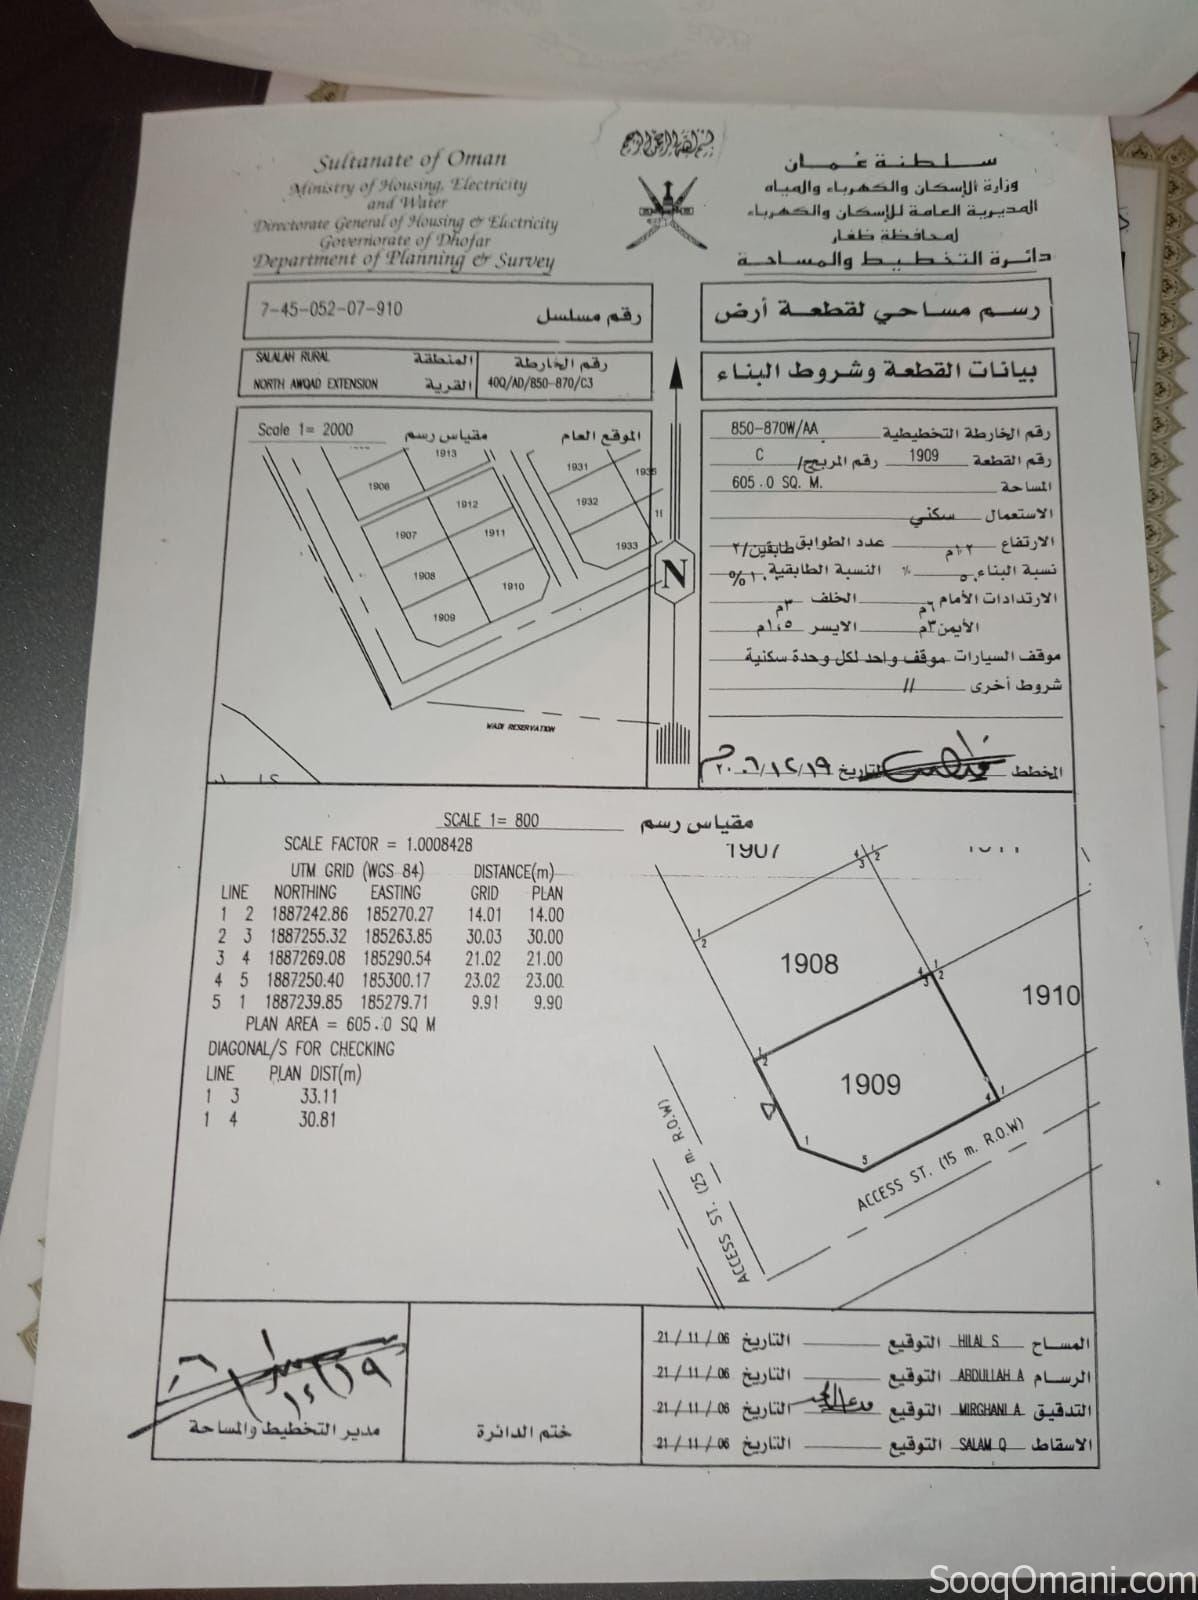 Sultanate of Oman
Ministry of Housing, Electricity
and Water
Directorate General of Housing & Electricity
Governorate of Dhofar
Department of Planning & Survey
سلطنة عمان
وزارة الإسكان والكهرباء والمياه
المديرية العامة للإسكان والكهرباء
لمحافظة ظفار
دائرة التخطيط والمساحة
7-45-052-07-910 رقم مسلسل
رسم مساحي لقطعة أرض
SALALAH RURAL المنطقة
NORTH AWQAD EXTENSION القرية
رقم الخارطة
40Q/AD/850-870/C3
بيانات القطعة وشروط البناء
Scale 1= 2000 مقياس رسم
الموقع العام
1913
1906
1912
1907
1911
1908
1910
1909
1931
1935
1932
1933
11
WADI RESERVATION
N
رقم الخارطة التخطيطية 850-870W/AA
رقم القطعة 1909 رقم المربع/ C
المساحة 605.0 SQ. M.
الاستعمال سكني
الارتفاع ١٢م عدد الطوابق طابقين/٢
نسبة البناء ٥٠ % النسبة الطابقية ١٠٠%
الارتدادات الأمام ٦م الخلف ٣م
الأيمن ٣م الايسر ١,٥م
موقف السيارات موقف واحد لكل وحدة سكنية
شروط أخرى //
المخطط التاريخ ٢٠٠٦/١٢/١٩م
SCALE 1= 800 مقياس رسم
SCALE FACTOR = 1.0008428
UTM GRID (WGS 84) DISTANCE(m)
LINE NORTHING EASTING GRID PLAN
1 2 1887242.86 185270.27 14.01 14.00
2 3 1887255.32 185263.85 30.03 30.00
3 4 1887269.08 185290.54 21.02 21.00
4 5 1887250.40 185300.17 23.02 23.00
5 1 1887239.85 185279.71 9.91 9.90
PLAN AREA = 605.0 SQ M
DIAGONAL/S FOR CHECKING
LINE PLAN DIST(m)
1 3 33.11
1 4 30.81
1907
1908
1910
1909
ACCESS ST. (25 m. R.O.W)
ACCESS ST. (15 m. R.O.W)
مدير التخطيط والمساحة
ختم الدائرة
المساح HILAL S التوقيع التاريخ 21/11/06
الرسام ABDULLAH A التوقيع التاريخ 21/11/06
التدقيق MIRGHANI A التوقيع التاريخ 21/11/06
الاسقاط SALAM Q التوقيع التاريخ 21/11/06
SooqOmani.com